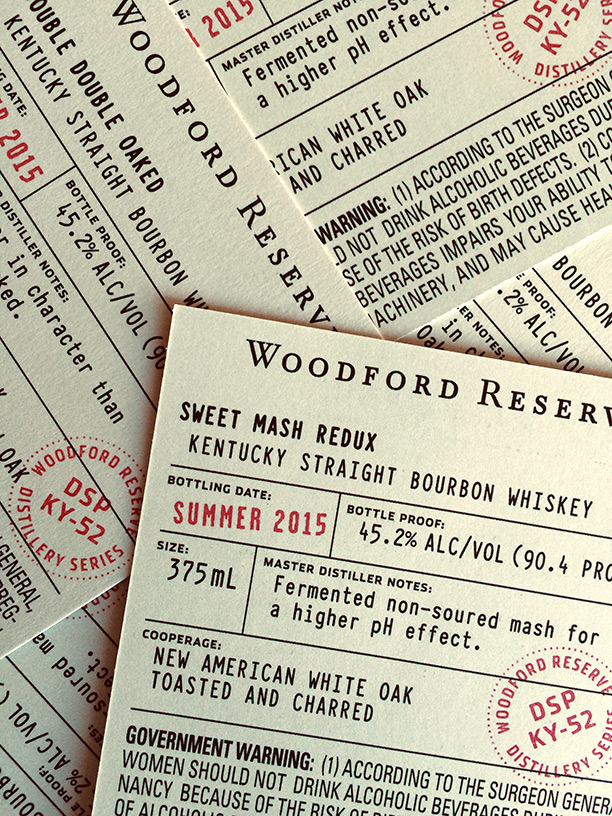 WOODFORD RESERV
SWEET MASH REDUX
KENTUCKY STRAIGHT BOURBON WHISKEY
BOTTLING DATE:
SUMMER 2015
BOTTLE PROOF:
45.2% ALC/VOL (90.4 PRO
SIZE:
375mL
MASTER DISTILLER NOTES:
Fermented non-soured mash for
a higher pH effect.
COOPERAGE:
NEW AMERICAN WHITE OAK
TOASTED AND CHARRED
WOODFORD RESERVE
DSP
KY-52
DISTILLERY SERIES
GOVERNMENT WARNING: (1) ACCORDING TO THE SURGEON GENERA
WOMEN SHOULD NOT DRINK ALCOHOLIC BEVERAGES DURI
NANCY BECAUSE OF THE RISK OF BIR
OF ALCOHOLIC
WOODFORD RESERV
OUBLE DOUBLE OAKED
KENTUCKY STRAIGHT BOURBON W
NG DATE:
ER 2015
BOTTLE PROOF:
45.2% ALC/VOL (90
DISTILLER NOTES:
er in character than
ked.
OAK
WOODFORD RESERVE
DSP
KY-52
DISTILLERY SERIES
GENERAL,
PREG-
2015
MASTER DISTILLER NOTES:
Fermented non-sou
a higher pH effect.
ICAN WHITE OAK
AND CHARRED
WOODFORD
DSP
KY-52
DISTILLERY SERIE
WARNING: (1) ACCORDING TO THE SURGEON
D NOT DRINK ALCOHOLIC BEVERAGES DU
SE OF THE RISK OF BIRTH DEFECTS. (2) C
BEVERAGES IMPAIRS YOUR ABILITY
ACHINERY, AND MAY CAUSE HEA
BOURBON
PROOF:
.2% ALC/VOL
ER NOTES:
-soured m
ect.
PROOF:
2% ALC/VOL